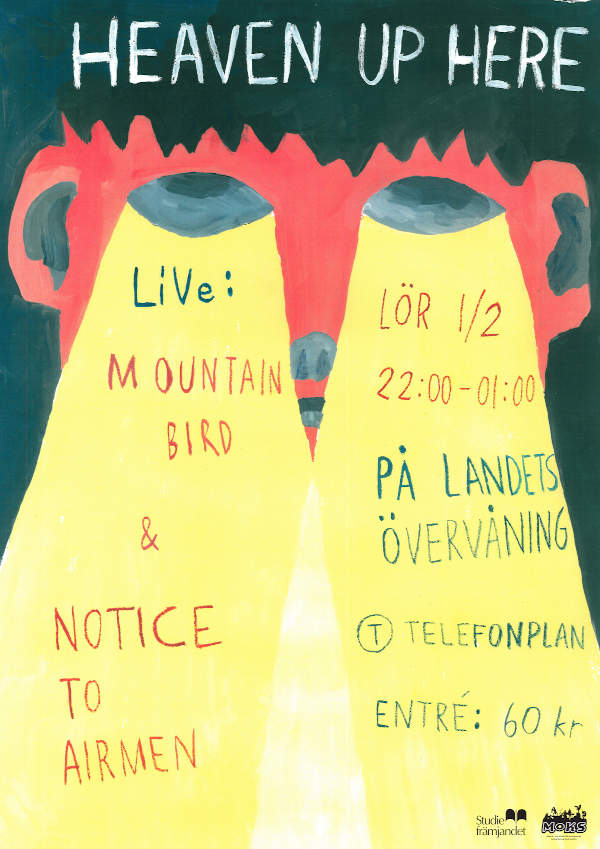 HEAVEN UP HERE
LiVe:
MOUNTAIN
BIRD
&
NOTICE
TO
AIRMEN
LÖR 1/2
22:00-01:00
PÅ LANDETS
ÖVERVÅNING
T TELEFONPLAN
ENTRÉ: 60 kr
Studie
främjandet
MOKS